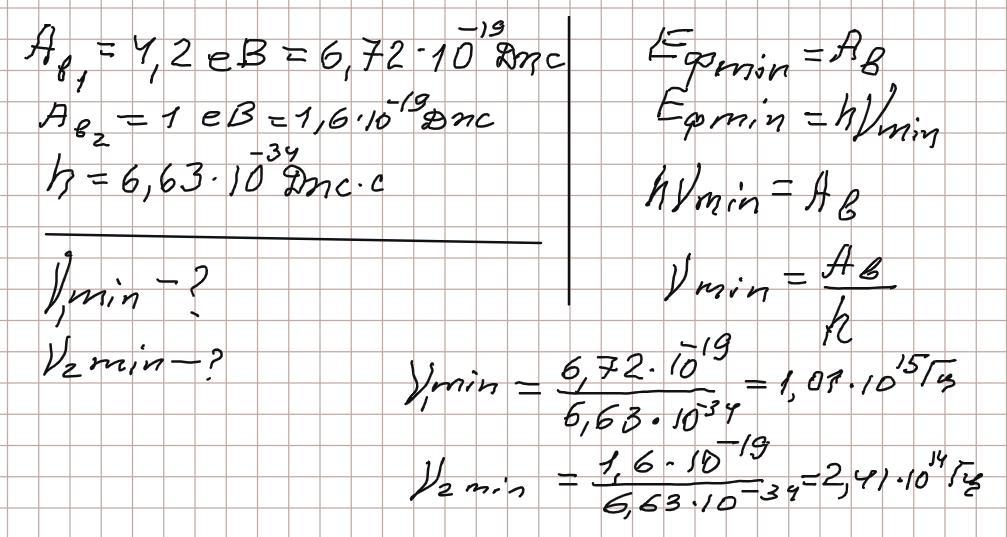 Aв₁ = 4,2 еВ = 6,72·10⁻¹⁹ Дж
Aв₂ = 1 еВ = 1,6·10⁻¹⁹ Дж
h = 6,63·10⁻³⁴ Дж·с
ν₁min – ?
ν₂min – ?
Eфmin = Aв
Eфmin = hνmin
hνmin = Aв
νmin = Aв/h
ν₁min = 6,72·10⁻¹⁹/6,63·10⁻³⁴ = 1,01·10¹⁵ Гц
ν₂min = 1,6·10⁻¹⁹/6,63·10⁻³⁴ = 2,41·10¹⁴ Гц